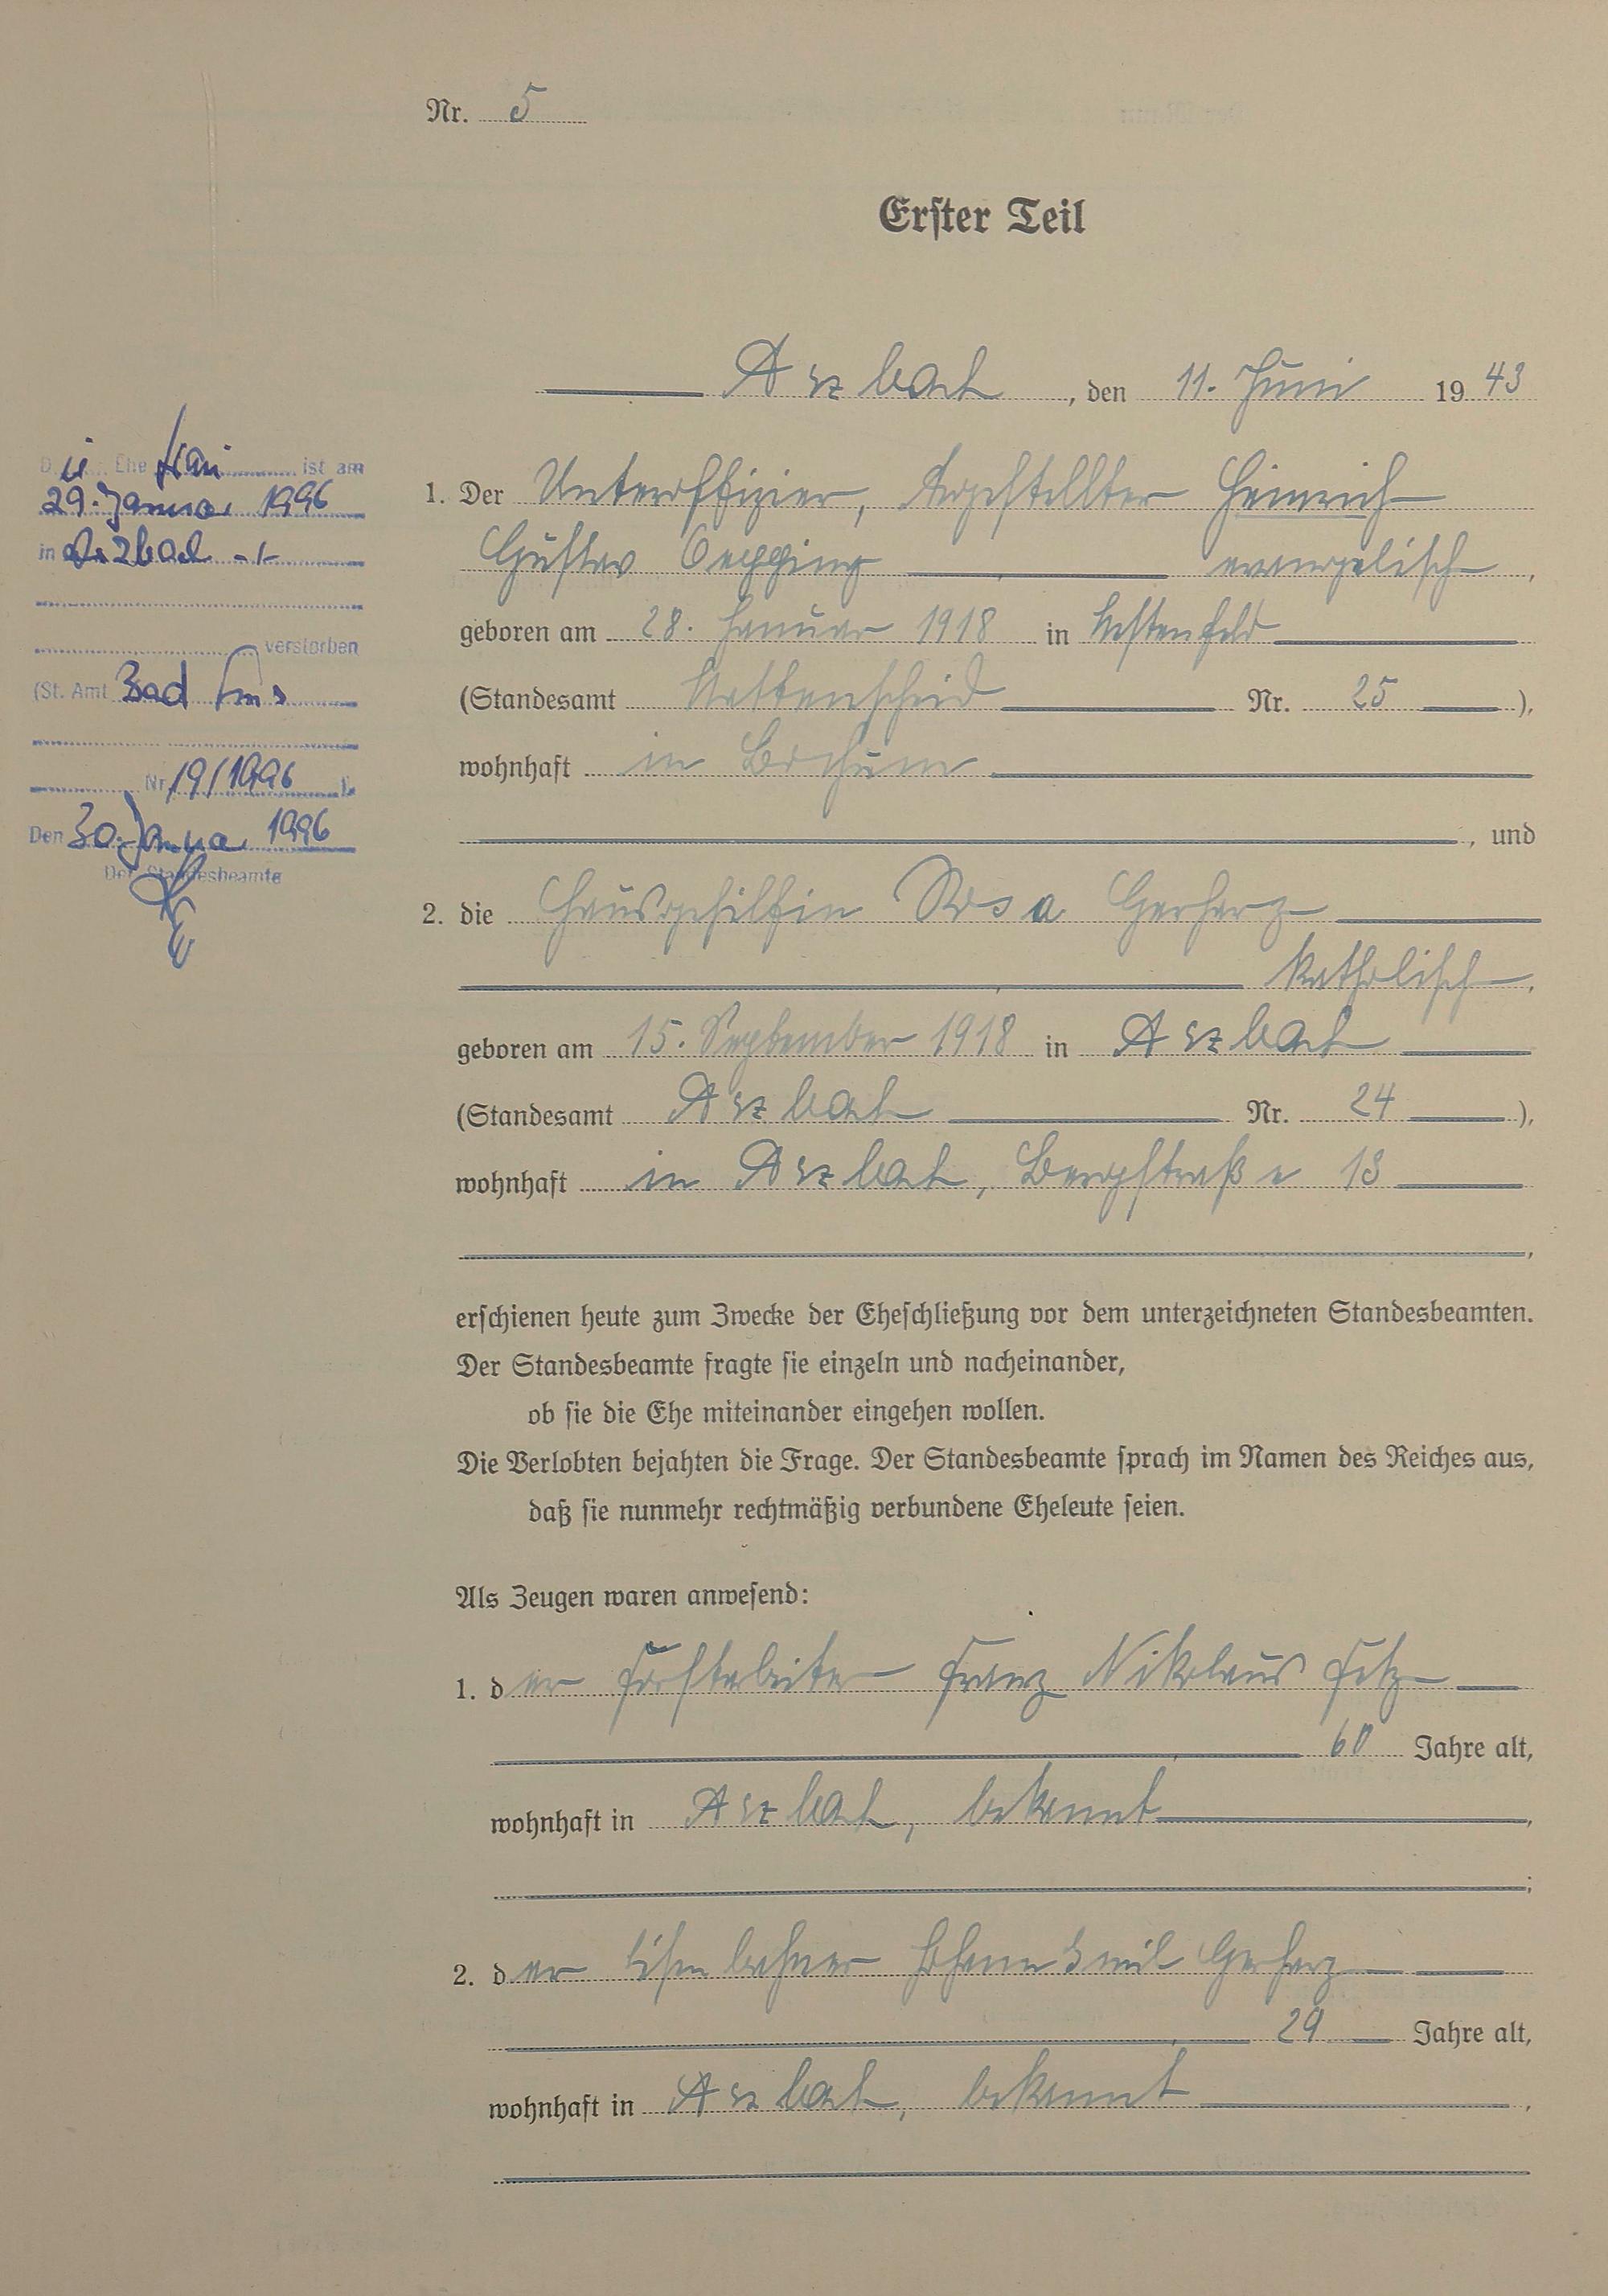 Nr. 5
Erster Teil
Arzbach, den 11. Juni 1943
1. Der Unteroffizier, Angestellter Heinrich
Gustav Oepping evangelisch,
geboren am 28. Januar 1918 in
(Standesamt Wattenscheid Nr. 25 ),
wohnhaft in Bochum
, und
2. die Hausgehilfin Rosa Gerharz
katholisch,
geboren am 15. September 1918 in Arzbach
(Standesamt Arzbach Nr. 24 ),
wohnhaft in Arzbach, Bergstraße 13
,
erschienen heute zum Zwecke der Eheschließung vor dem unterzeichneten Standesbeamten.
Der Standesbeamte fragte sie einzeln und nacheinander,
ob sie die Ehe miteinander eingehen wollen.
Die Verlobten bejahten die Frage. Der Standesbeamte sprach im Namen des Reiches aus,
daß sie nunmehr rechtmäßig verbundene Eheleute seien.
Als Zeugen waren anwesend:
1. der Franz Nikolaus
60 Jahre alt,
wohnhaft in Arzbach, bekannt,
;
2. der Eisenbahner Johann Emil Gerharz
29 Jahre alt,
wohnhaft in Arzbach, bekannt,
Die Ehefrau ist am
29. Januar 1996
in Arzbach -/-
verstorben
(St. Amt Bad Ems
Nr. 19/1996 ).
Den 30. Januar 1996
Der Standesbeamte